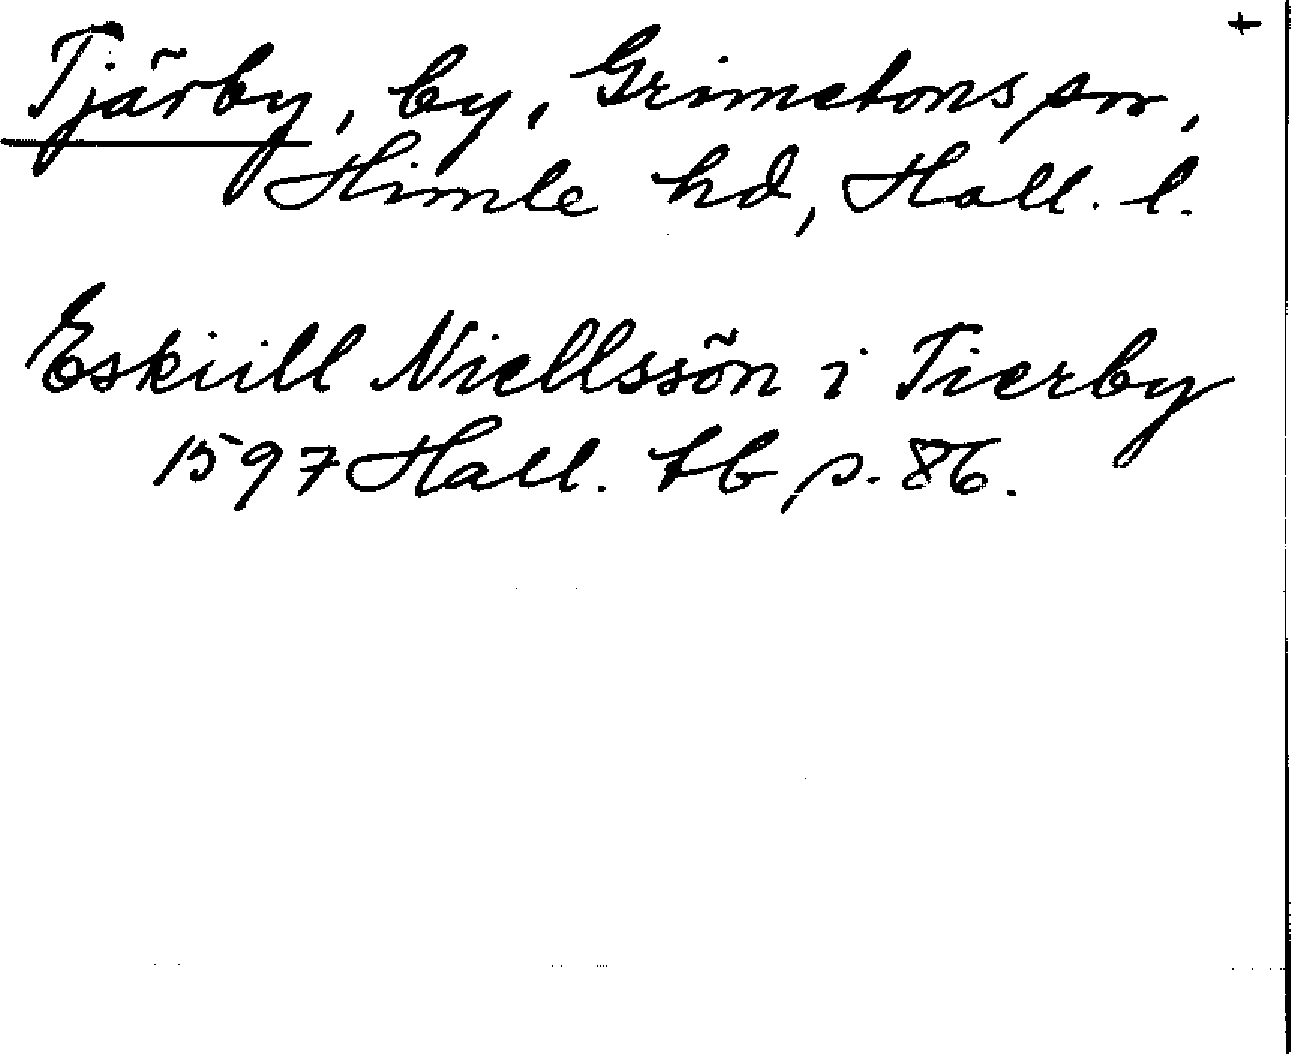 +
Tjärby, by, Grimetons sn,
Himle hd, Hall. l.
Eskiill Niellssön i Tierby
1597 Hall. tb p. 86.